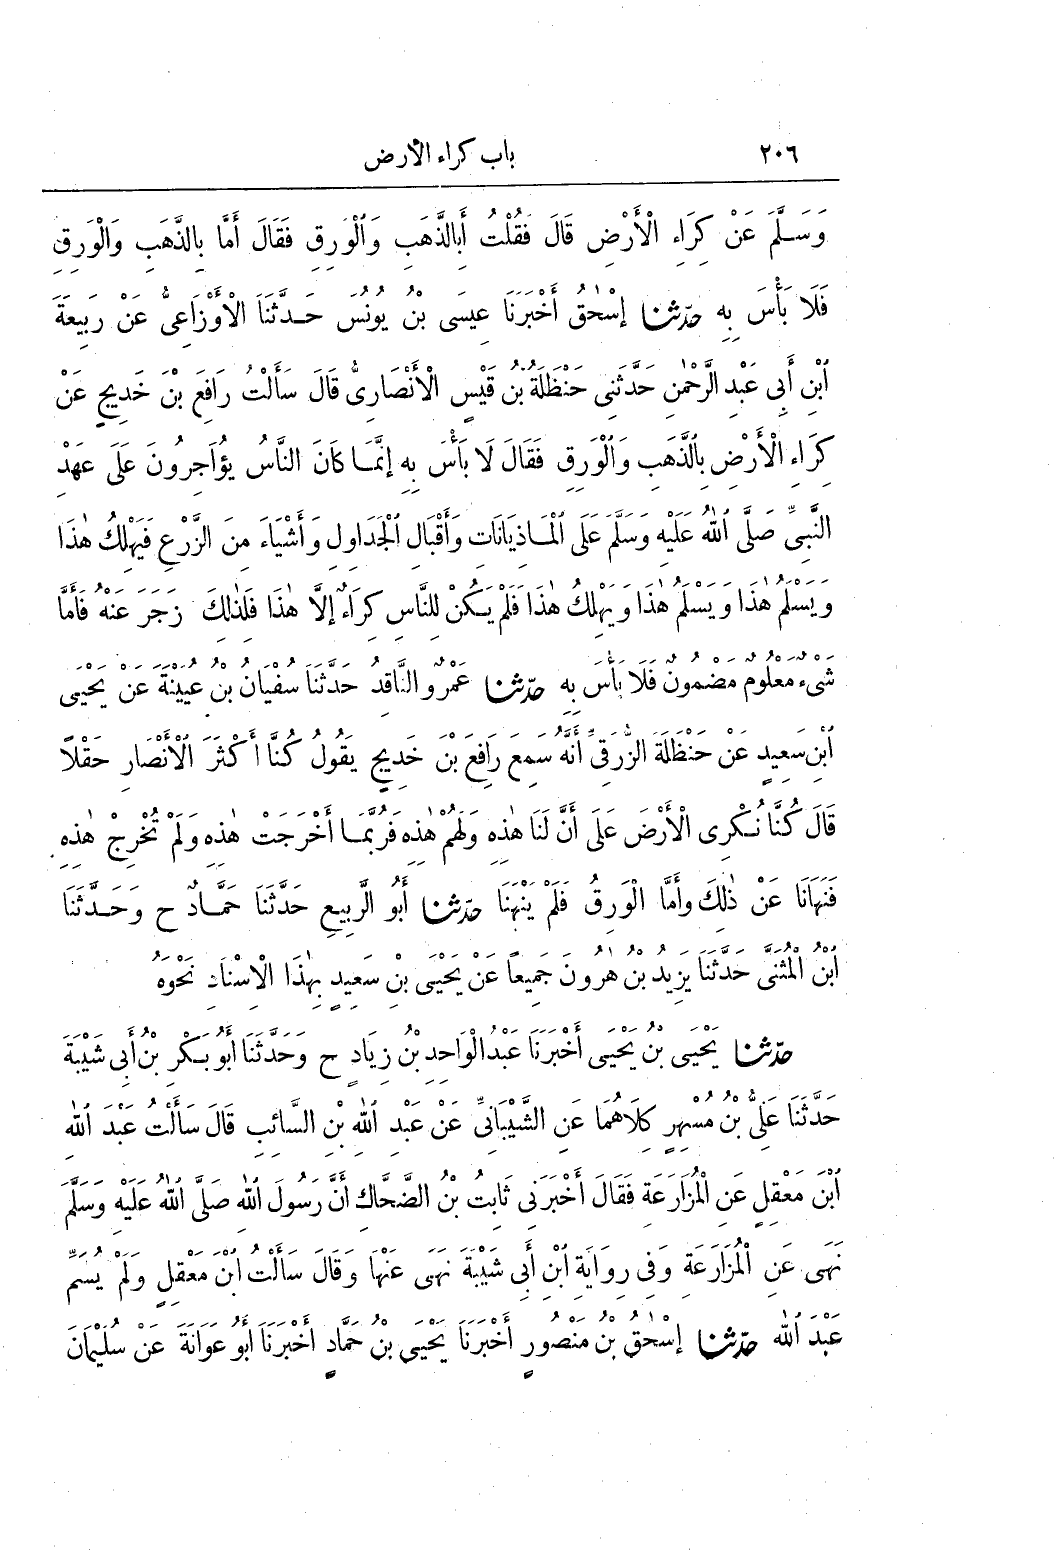 ٢٠٦ باب كراء الأرض
وَسَلَّمَ عَنْ كِرَاءِ الْأَرْضِ قَالَ فَقُلْتُ أَبِالذَّهَبِ وَالْوَرِقِ فَقَالَ أَمَّا بِالذَّهَبِ وَالْوَرِقِ
فَلَا بَأْسَ بِهِ حدّثنا إِسْحٰقُ أَخْبَرَنَا عِيسَى بْنُ يُونُسَ حَدَّثَنَا الْأَوْزَاعِىُّ عَنْ رَبِيعَةَ
ابْنِ أَبِى عَبْدِ الرَّحْمٰنِ حَدَّثَنِى حَنْظَلَةُ بْنُ قَيْسٍ الْأَنْصَارِىُّ قَالَ سَأَلْتُ رَافِعَ بْنَ خَدِيجٍ عَنْ
كِرَاءِ الْأَرْضِ بِالذَّهَبِ وَالْوَرِقِ فَقَالَ لَا بَأْسَ بِهِ إِنَّمَا كَانَ النَّاسُ يُؤَاجِرُونَ عَلَى عَهْدِ
النَّبِىِّ صَلَّى اللهُ عَلَيْهِ وَسَلَّمَ عَلَى الْمَاذِيَانَاتِ وَأَقْبَالِ الْجَدَاوِلِ وَأَشْيَاءَ مِنَ الزَّرْعِ فَيَهْلِكُ هٰذَا
وَيَسْلَمُ هٰذَا وَيَسْلَمُ هٰذَا وَيَهْلِكُ هٰذَا فَلَمْ يَكُنْ لِلنَّاسِ كِرَاءٌ إِلَّا هٰذَا فَلِذٰلِكَ زَجَرَ عَنْهُ فَأَمَّا
شَىْءٌ مَعْلُومٌ مَضْمُونٌ فَلَا بَأْسَ بِهِ حدّثنا عَمْرٌو النَّاقِدُ حَدَّثَنَا سُفْيَانُ بْنُ عُيَيْنَةَ عَنْ يَحْيَى
ابْنِ سَعِيدٍ عَنْ حَنْظَلَةَ الزُّرَقِىِّ أَنَّهُ سَمِعَ رَافِعَ بْنَ خَدِيجٍ يَقُولُ كُنَّا أَكْثَرَ الْأَنْصَارِ حَقْلًا
قَالَ كُنَّا نُكْرِى الْأَرْضَ عَلَى أَنَّ لَنَا هٰذِهِ وَلَهُمْ هٰذِهِ فَرُبَّمَا أَخْرَجَتْ هٰذِهِ وَلَمْ تُخْرِجْ هٰذِهِ
فَنَهَانَا عَنْ ذٰلِكَ وَأَمَّا الْوَرِقُ فَلَمْ يَنْهَنَا حدّثنا أَبُو الرَّبِيعِ حَدَّثَنَا حَمَّادٌ ح وَحَدَّثَنَا
ابْنُ الْمُثَنَّى حَدَّثَنَا يَزِيدُ بْنُ هٰرُونَ جَمِيعًا عَنْ يَحْيَى بْنِ سَعِيدٍ بِهٰذَا الْإِسْنَادِ نَحْوَهُ
حدّثنا يَحْيَى بْنُ يَحْيَى أَخْبَرَنَا عَبْدُ الْوَاحِدِ بْنُ زِيَادٍ ح وَحَدَّثَنَا أَبُو بَكْرِ بْنُ أَبِى شَيْبَةَ
حَدَّثَنَا عَلِىُّ بْنُ مُسْهِرٍ كِلَاهُمَا عَنِ الشَّيْبَانِىِّ عَنْ عَبْدِ اللهِ بْنِ السَّائِبِ قَالَ سَأَلْتُ عَبْدَ اللهِ
ابْنَ مَعْقِلٍ عَنِ الْمُزَارَعَةِ فَقَالَ أَخْبَرَنِى ثَابِتُ بْنُ الضَّحَّاكِ أَنَّ رَسُولَ اللهِ صَلَّى اللهُ عَلَيْهِ وَسَلَّمَ
نَهَى عَنِ الْمُزَارَعَةِ وَفِى رِوَايَةِ ابْنِ أَبِى شَيْبَةَ نَهَى عَنْهَا وَقَالَ سَأَلْتُ ابْنَ مَعْقِلٍ وَلَمْ يُسَمِّ
عَبْدَ اللهِ حدّثنا إِسْحٰقُ بْنُ مَنْصُورٍ أَخْبَرَنَا يَحْيَى بْنُ حَمَّادٍ أَخْبَرَنَا أَبُو عَوَانَةَ عَنْ سُلَيْمَانَ